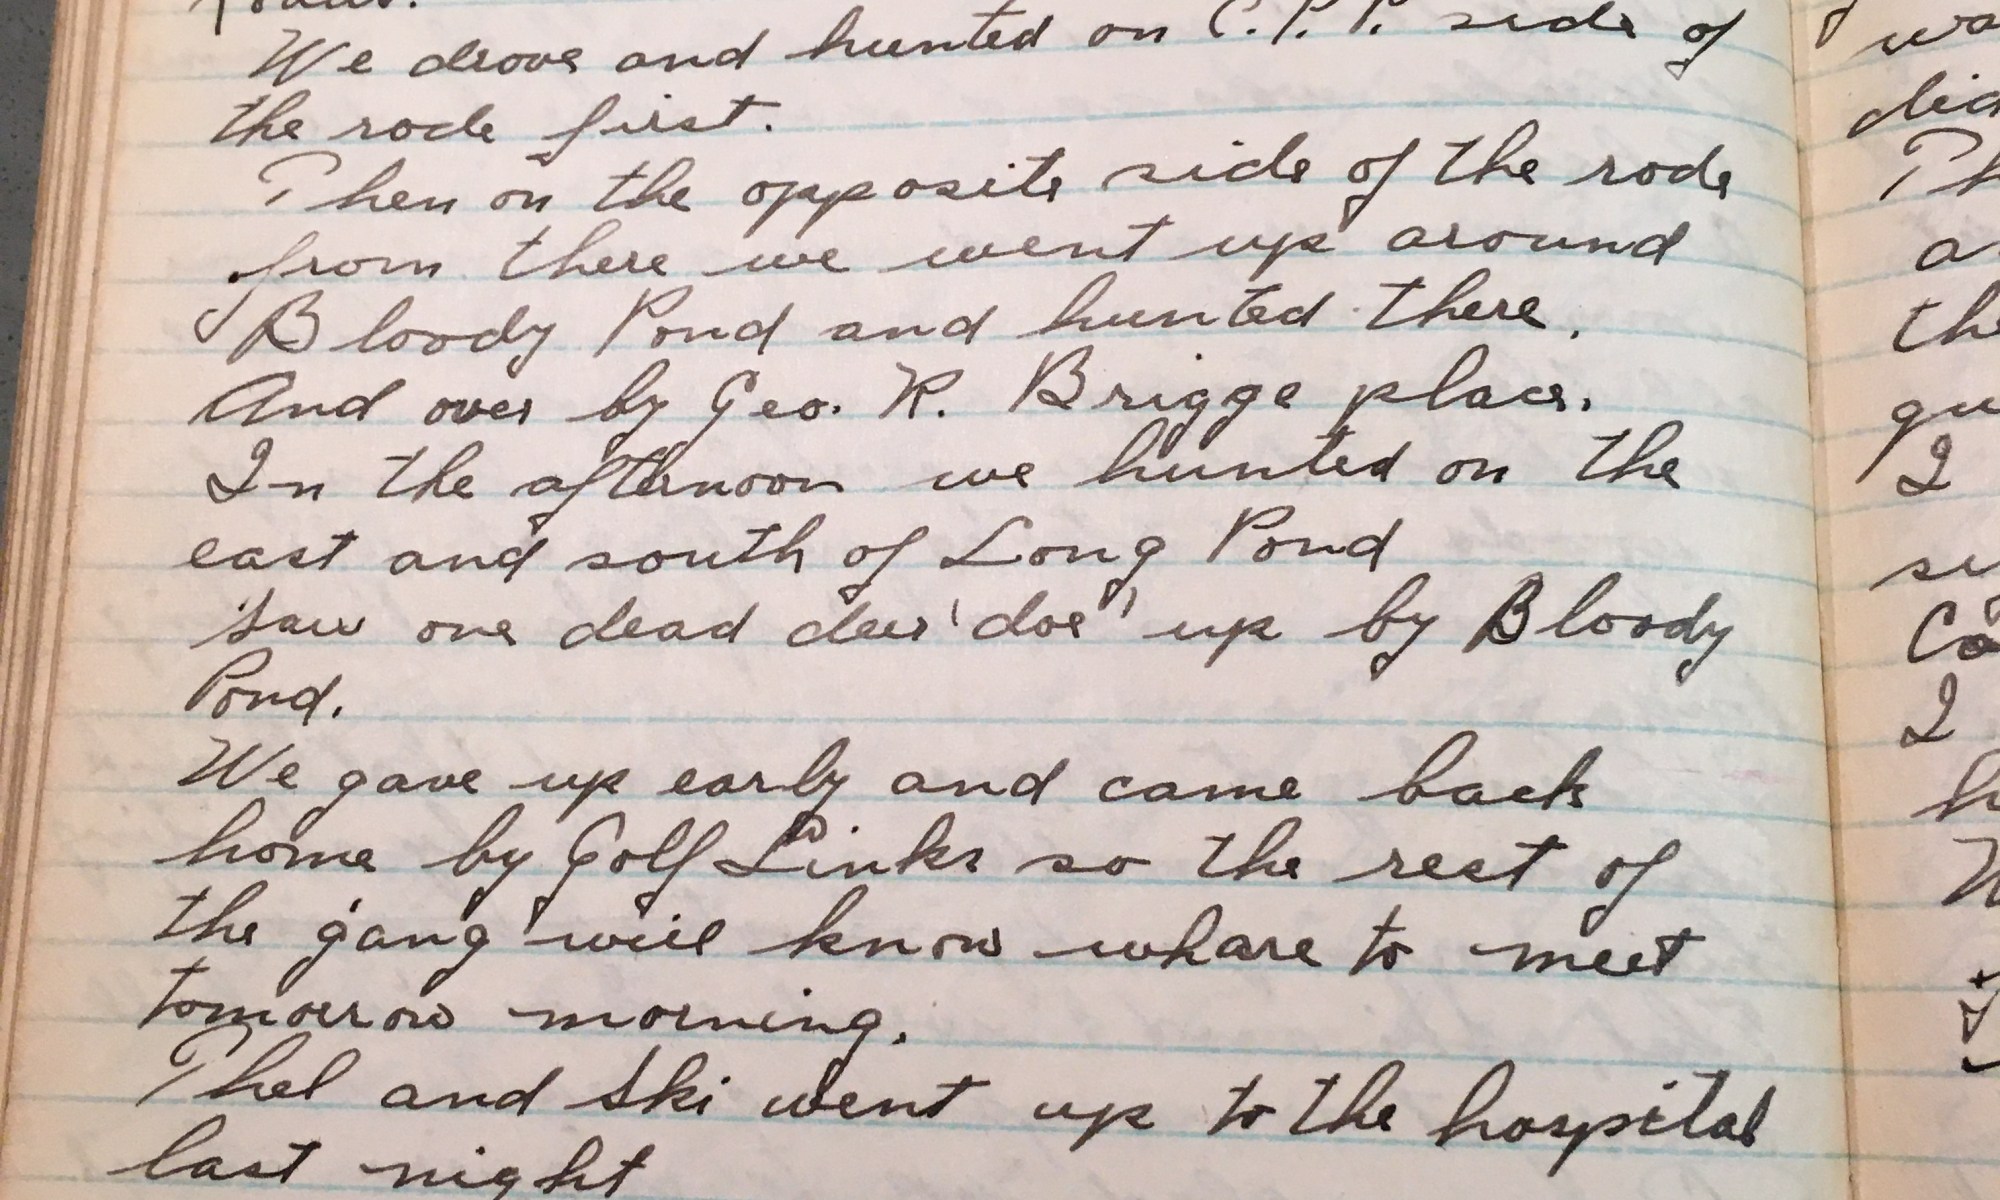 We drove and hunted on C.P.P. side of
the rode first.
Then on the opposite side of the rode
from there we went up around
Bloody Pond and hunted there.
And over by Geo. R. Briggs place.
In the afternoon we hunted on the
east and south of Long Pond
Saw one dead deer "doe" up by Bloody
Pond.
We gave up early and came back
home by Golf Links so the rest of
the gang will know whare to meet
tomorrow morning.
Thel and Ski went up to the hospital
last night